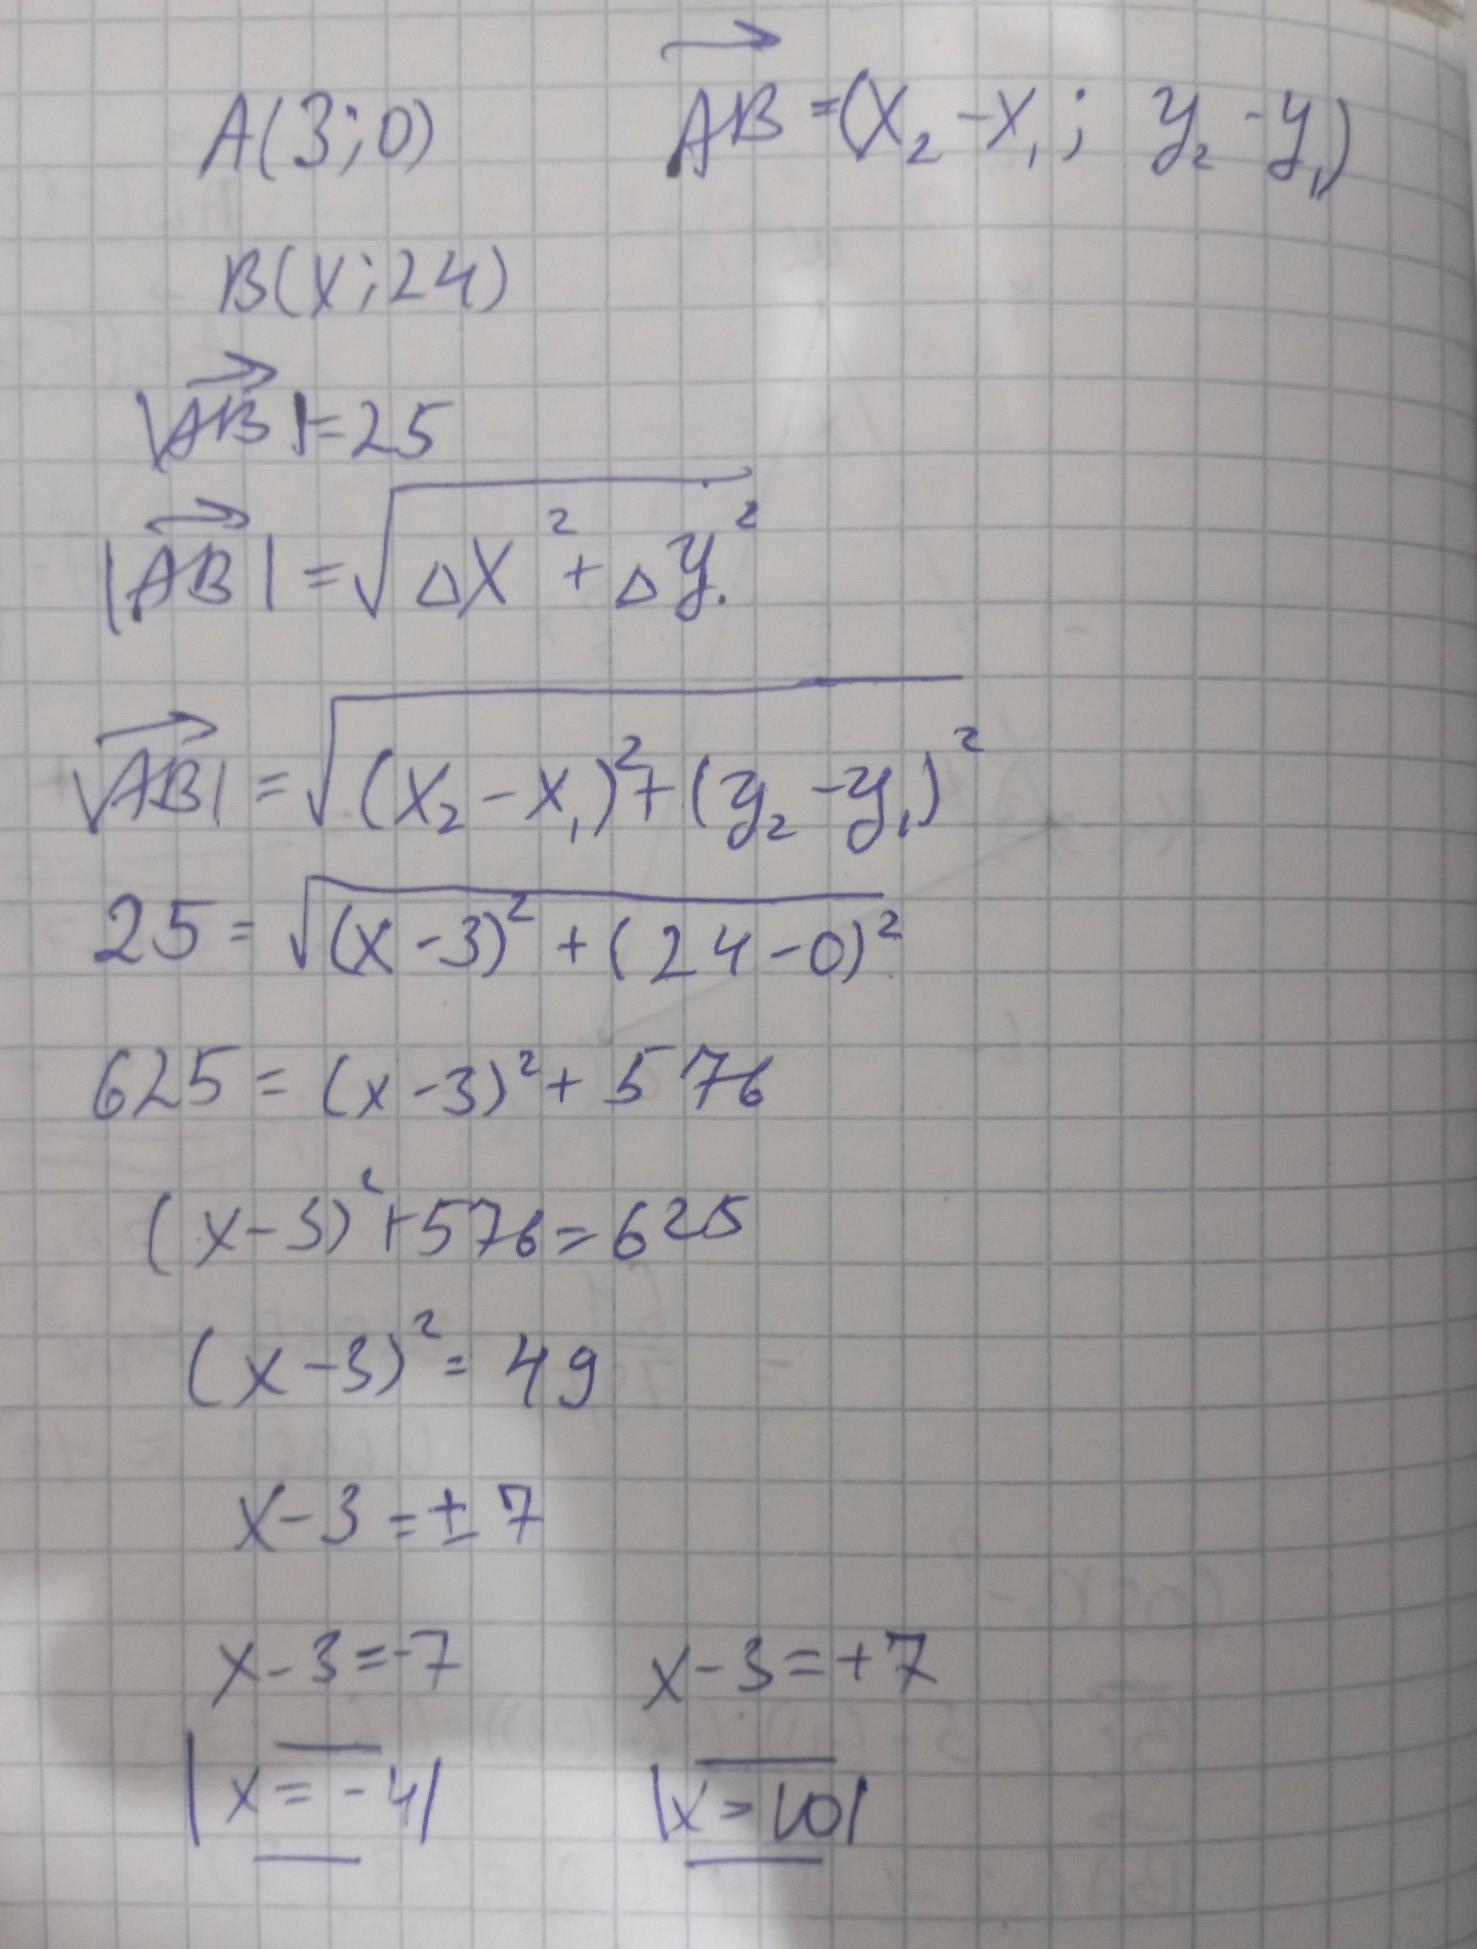 A(3;0) →AB=(x₂-x₁; y₂-y₁)
B(x;24)
|→AB|=25
|→AB|=√(Δx²+Δy²)
|→AB|=√((x₂-x₁)²+(y₂-y₁)²)
25=√((x-3)²+(24-0)²)
625=(x-3)²+576
(x-3)²+576=625
(x-3)²=49
x-3=±7
x-3=-7 x-3=+7
|x=-4| |x=10|